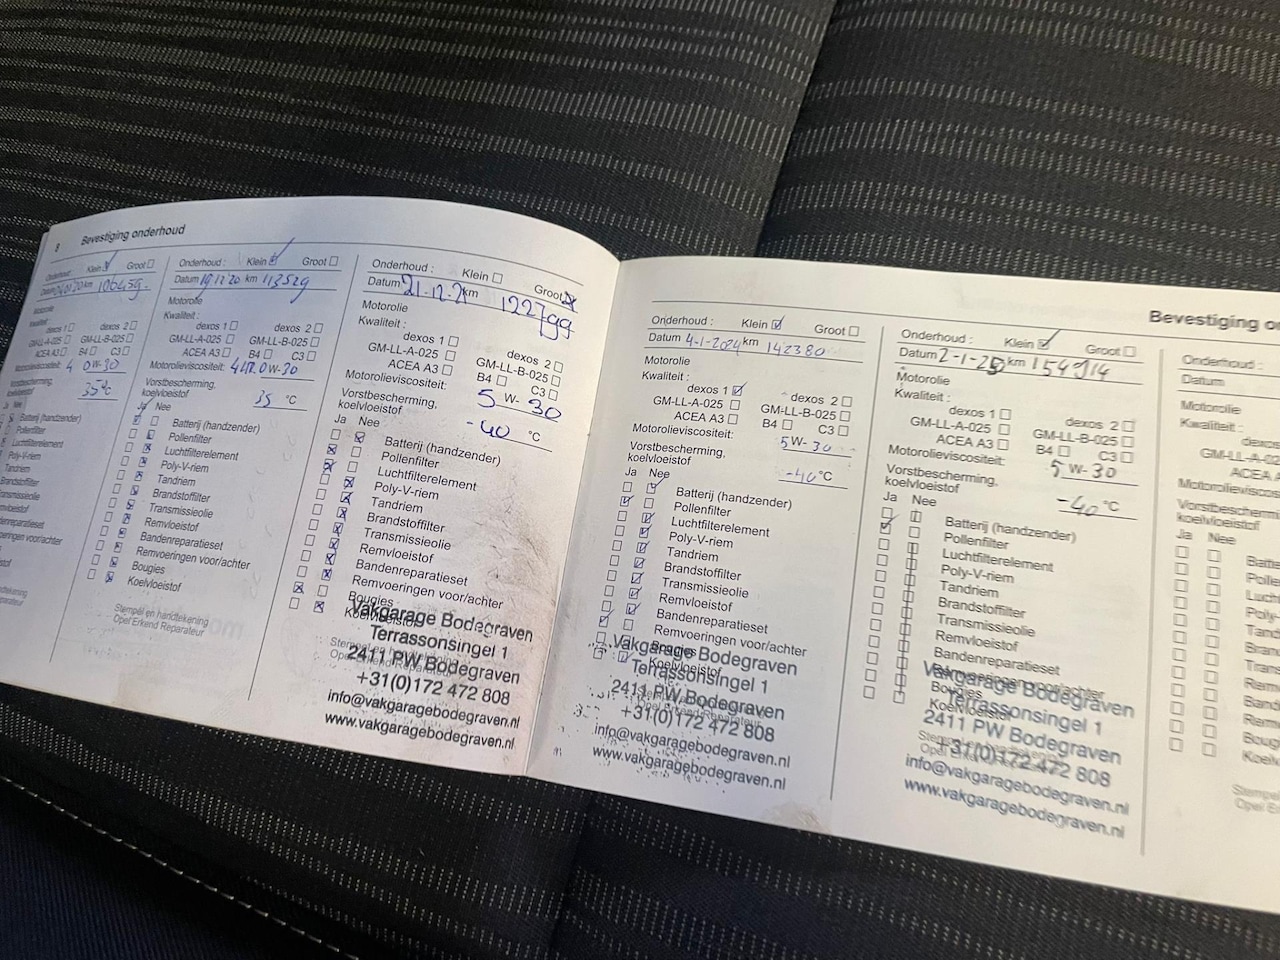 8 Bevestiging onderhoud
Onderhoud: Klein Groot
km 106459.
Motorolie
Kwaliteit:
dexos 1 dexos 2
GM-LL-A-025 GM-LL-B-025
ACEA A3 B4 C3
Motorolieviscositeit: 0W-30
Vorstbescherming,
koelvloeistof 35°C
Ja Nee
Batterij (handzender)
Pollenfilter
Luchtfilterelement
Poly-V-riem
Tandriem
Brandstoffilter
Transmissieolie
Remvloeistof
Bandenreparatieset
Onderhoud : Klein Groot
Datum 19 12 20 km 113529
Motorolie
Kwaliteit :
dexos 1 dexos 2
GM-LL-A-025 GM-LL-B-025
ACEA A3 B4 C3
Motorolieviscositeit: 0W-30
Vorstbescherming,
koelvloeistof 35 °C
Ja Nee
Batterij (handzender)
Pollenfilter
Luchtfilterelement
Poly-V-riem
Tandriem
Brandstoffilter
Transmissieolie
Remvloeistof
Bandenreparatieset
Remvoeringen voor/achter
Bougies
Koelvloeistof
Stempel en handtekening
Opel Erkend Reparateur
Onderhoud : Klein Groot
Datum 21-12-21 km 122799
Motorolie
Kwaliteit :
dexos 1 dexos 2
GM-LL-A-025 GM-LL-B-025
ACEA A3 B4 C3
Motorolieviscositeit: 5 W- 30
Vorstbescherming,
koelvloeistof -40 °C
Ja Nee
Batterij (handzender)
Pollenfilter
Luchtfilterelement
Poly-V-riem
Tandriem
Brandstoffilter
Transmissieolie
Remvloeistof
Bandenreparatieset
Remvoeringen voor/achter
Bougies
Koelvloeistof
Vakgarage Bodegraven
Terrassonsingel 1
2411 PW Bodegraven
+31(0)172 472 808
info@vakgaragebodegraven.nl
www.vakgaragebodegraven.nl
Bevestiging
Onderhoud : Klein Groot
Datum 4-1-2024 km 142380
Motorolie
Kwaliteit :
dexos 1 dexos 2
GM-LL-A-025 GM-LL-B-025
ACEA A3 B4 C3
Motorolieviscositeit: 5W-30
Vorstbescherming,
koelvloeistof -40°C
Ja Nee
Batterij (handzender)
Pollenfilter
Luchtfilterelement
Poly-V-riem
Tandriem
Brandstoffilter
Transmissieolie
Remvloeistof
Bandenreparatieset
Remvoeringen voor/achter
Bougies
Koelvloeistof
Vakgarage Bodegraven
Terrassonsingel 1
2411 PW Bodegraven
+31(0)172 472 808
info@vakgaragebodegraven.nl
www.vakgaragebodegraven.nl
Onderhoud : Klein Groot
Datum 2-1-25 km 154914
Motorolie
Kwaliteit :
dexos 1 dexos 2
GM-LL-A-025 GM-LL-B-025
ACEA A3 B4 C3
Motorolieviscositeit: 5 W-30
Vorstbescherming,
koelvloeistof -40 °C
Ja Nee
Batterij (handzender)
Pollenfilter
Luchtfilterelement
Poly-V-riem
Tandriem
Brandstoffilter
Transmissieolie
Remvloeistof
Bandenreparatieset
Remvoeringen voor/achter
Bougies
Koelvloeistof
Vakgarage Bodegraven
Terrassonsingel 1
2411 PW Bodegraven
+31(0)172 472 808
info@vakgaragebodegraven.nl
www.vakgaragebodegraven.nl
Onderhoud :
Datum
Motorolie
Kwaliteit :
GM-LL-A-02
ACEA
Vorstbescherming,
koelvloeistof
Ja Nee